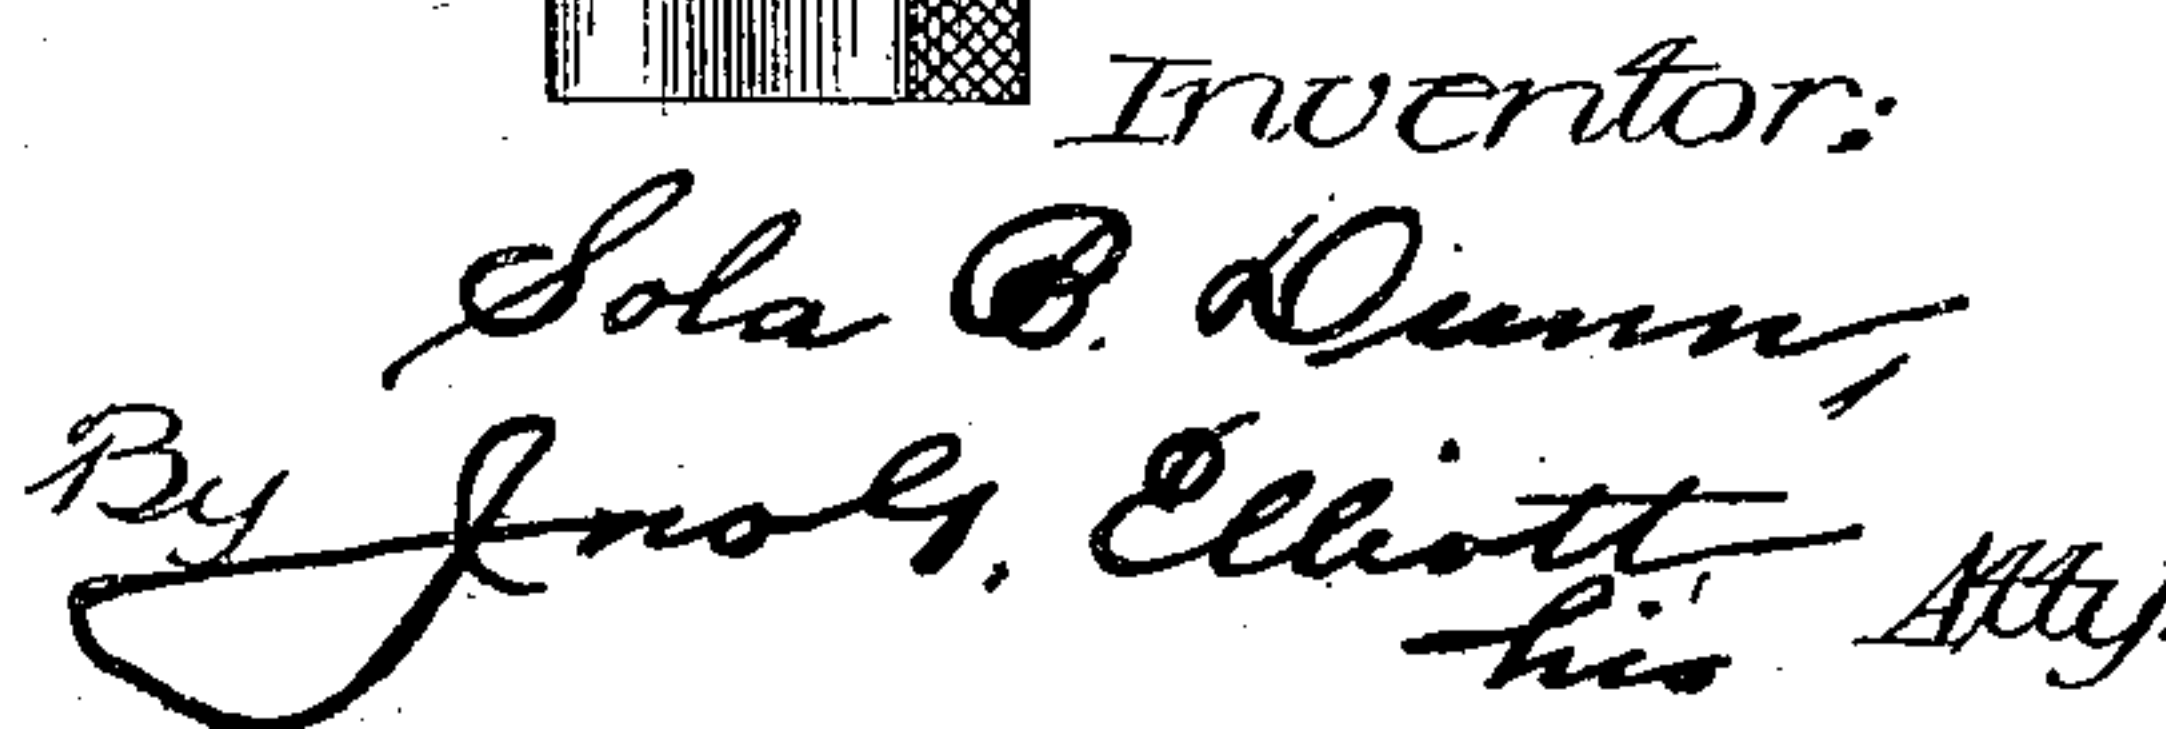 Inventor:
Sola B. Dunn,
By Jno. G. Elliott
his Atty.